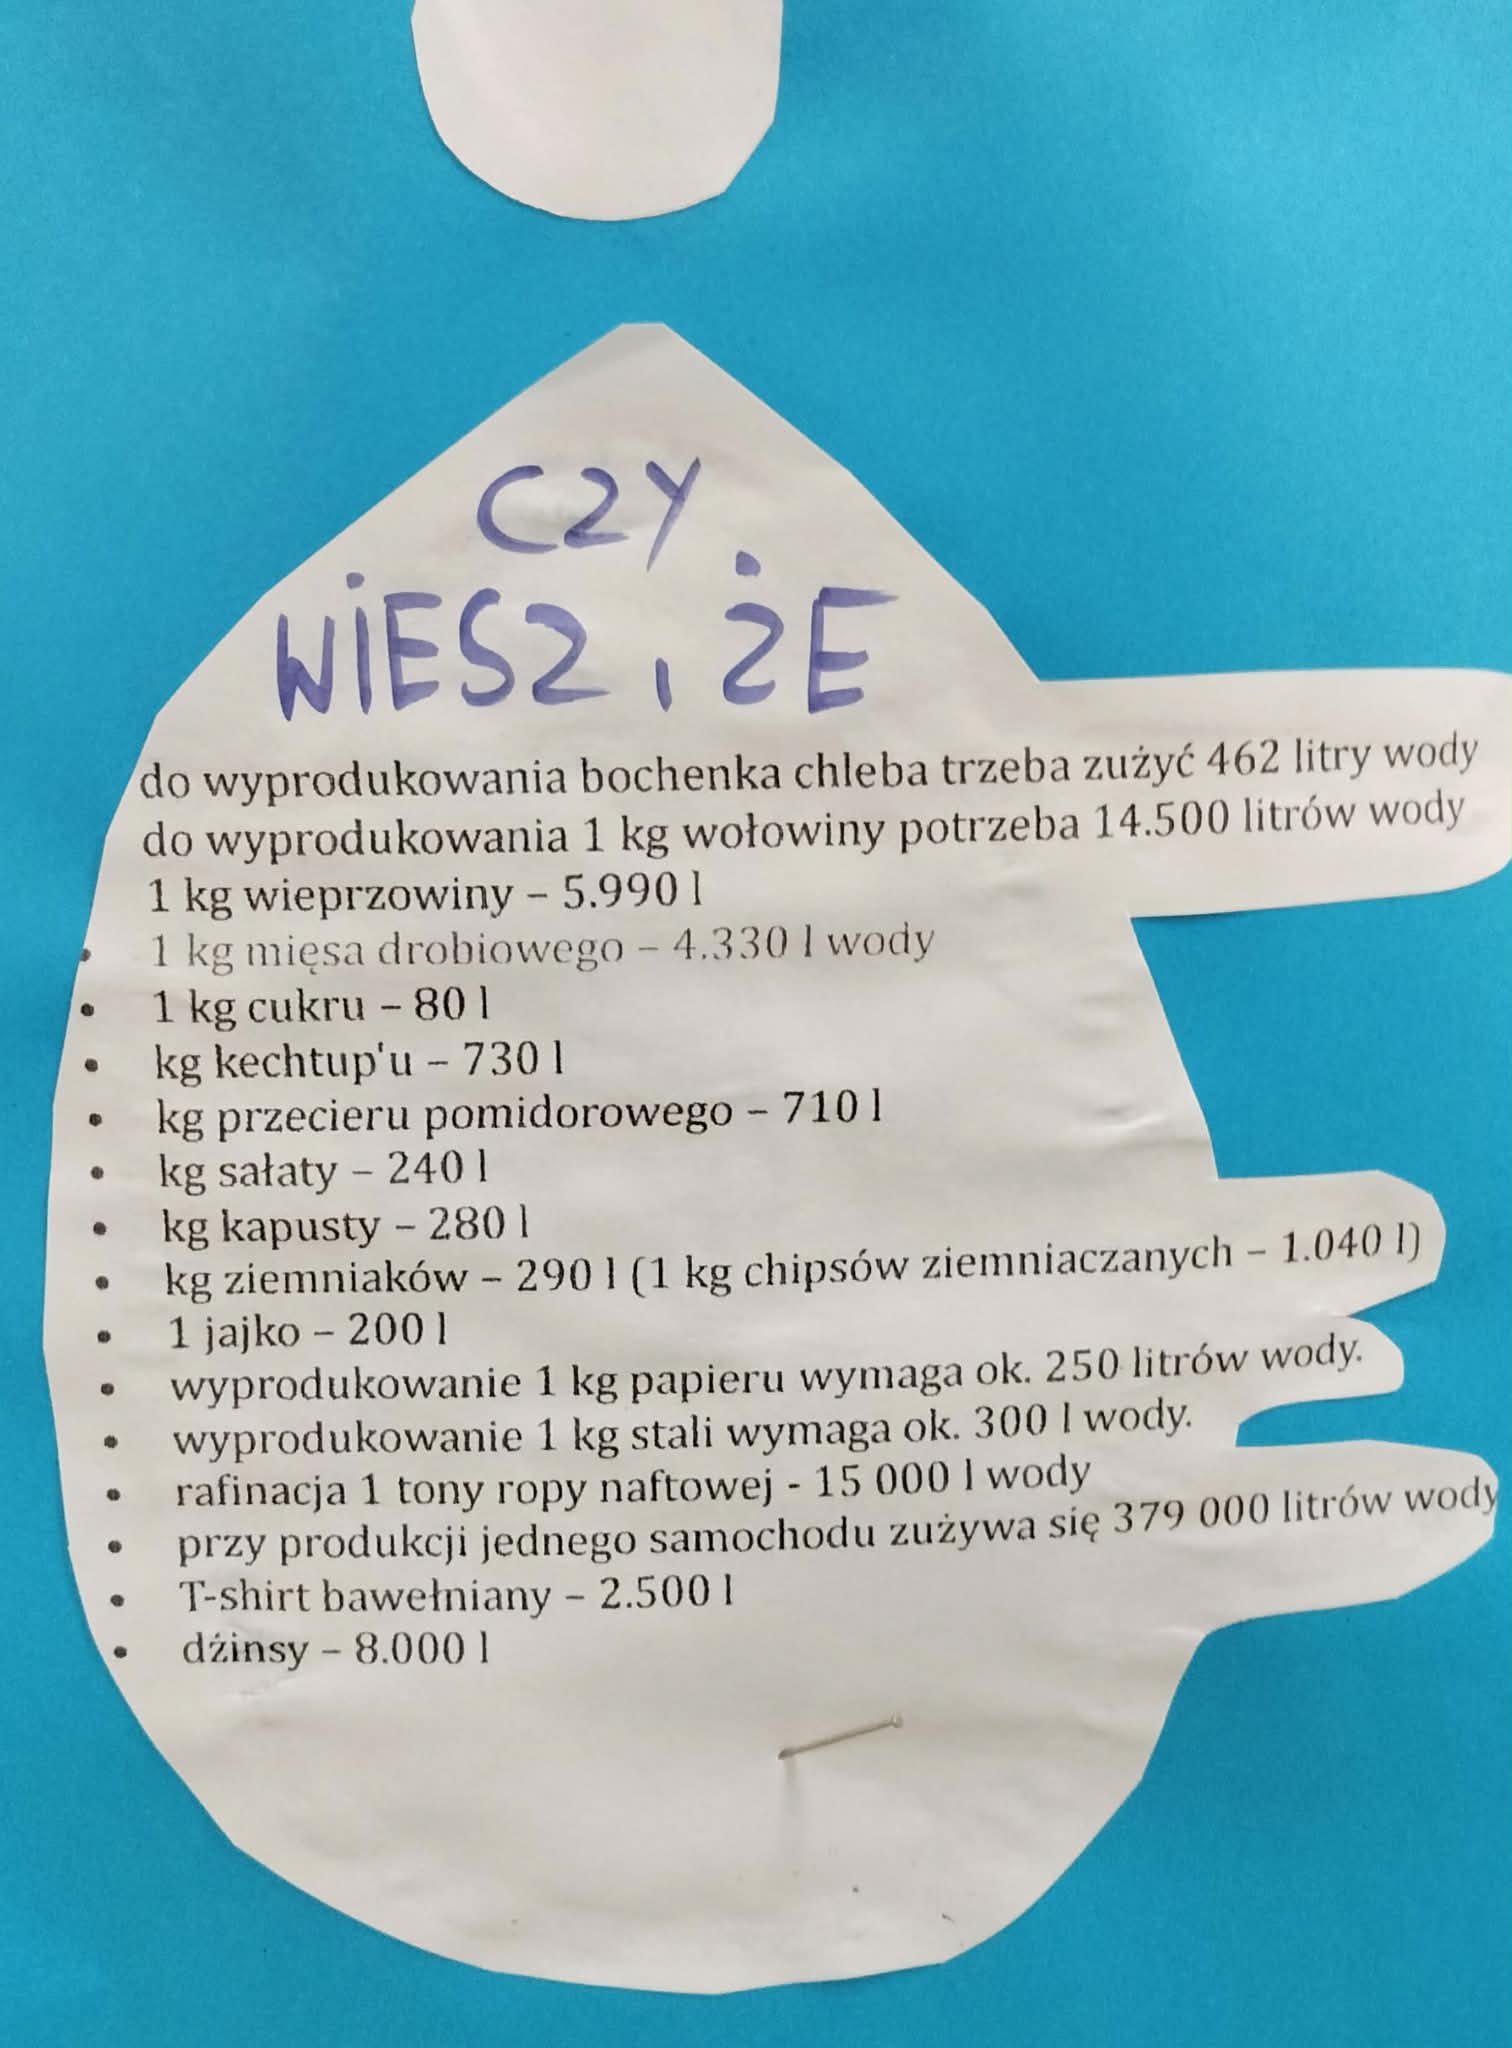 CZY
WIESZ, ŻE
do wyprodukowania bochenka chleba trzeba zużyć 462 litry wody
do wyprodukowania 1 kg wołowiny potrzeba 14.500 litrów wody
1 kg wieprzowiny – 5.990 l
• 1 kg mięsa drobiowego – 4.330 l wody
• 1 kg cukru – 80 l
• kg kechtup'u – 730 l
• kg przecieru pomidorowego – 710 l
• kg sałaty – 240 l
• kg kapusty – 280 l
• kg ziemniaków – 290 l (1 kg chipsów ziemniaczanych – 1.040 l)
• 1 jajko – 200 l
• wyprodukowanie 1 kg papieru wymaga ok. 250 litrów wody.
• wyprodukowanie 1 kg stali wymaga ok. 300 l wody.
• rafinacja 1 tony ropy naftowej - 15 000 l wody
• przy produkcji jednego samochodu zużywa się 379 000 litrów wody
• T-shirt bawełniany – 2.500 l
• dżinsy – 8.000 l